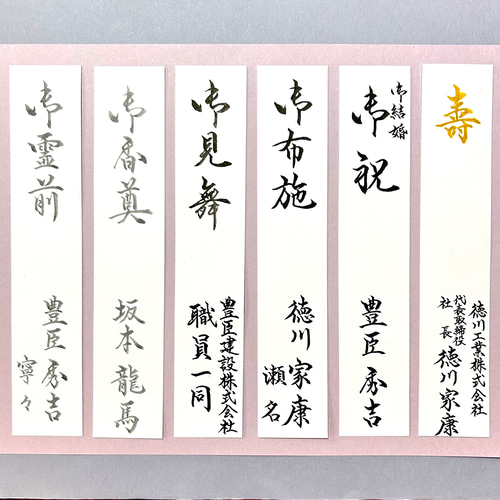 壽
徳川工業株式会社
代表取締役
社長 徳川家康
御結婚
御祝
豊臣秀吉
御布施
徳川家康
瀬名
御見舞
豊臣建設株式会社
職員一同
御香奠
坂本龍馬
御霊前
豊臣秀吉
寧々